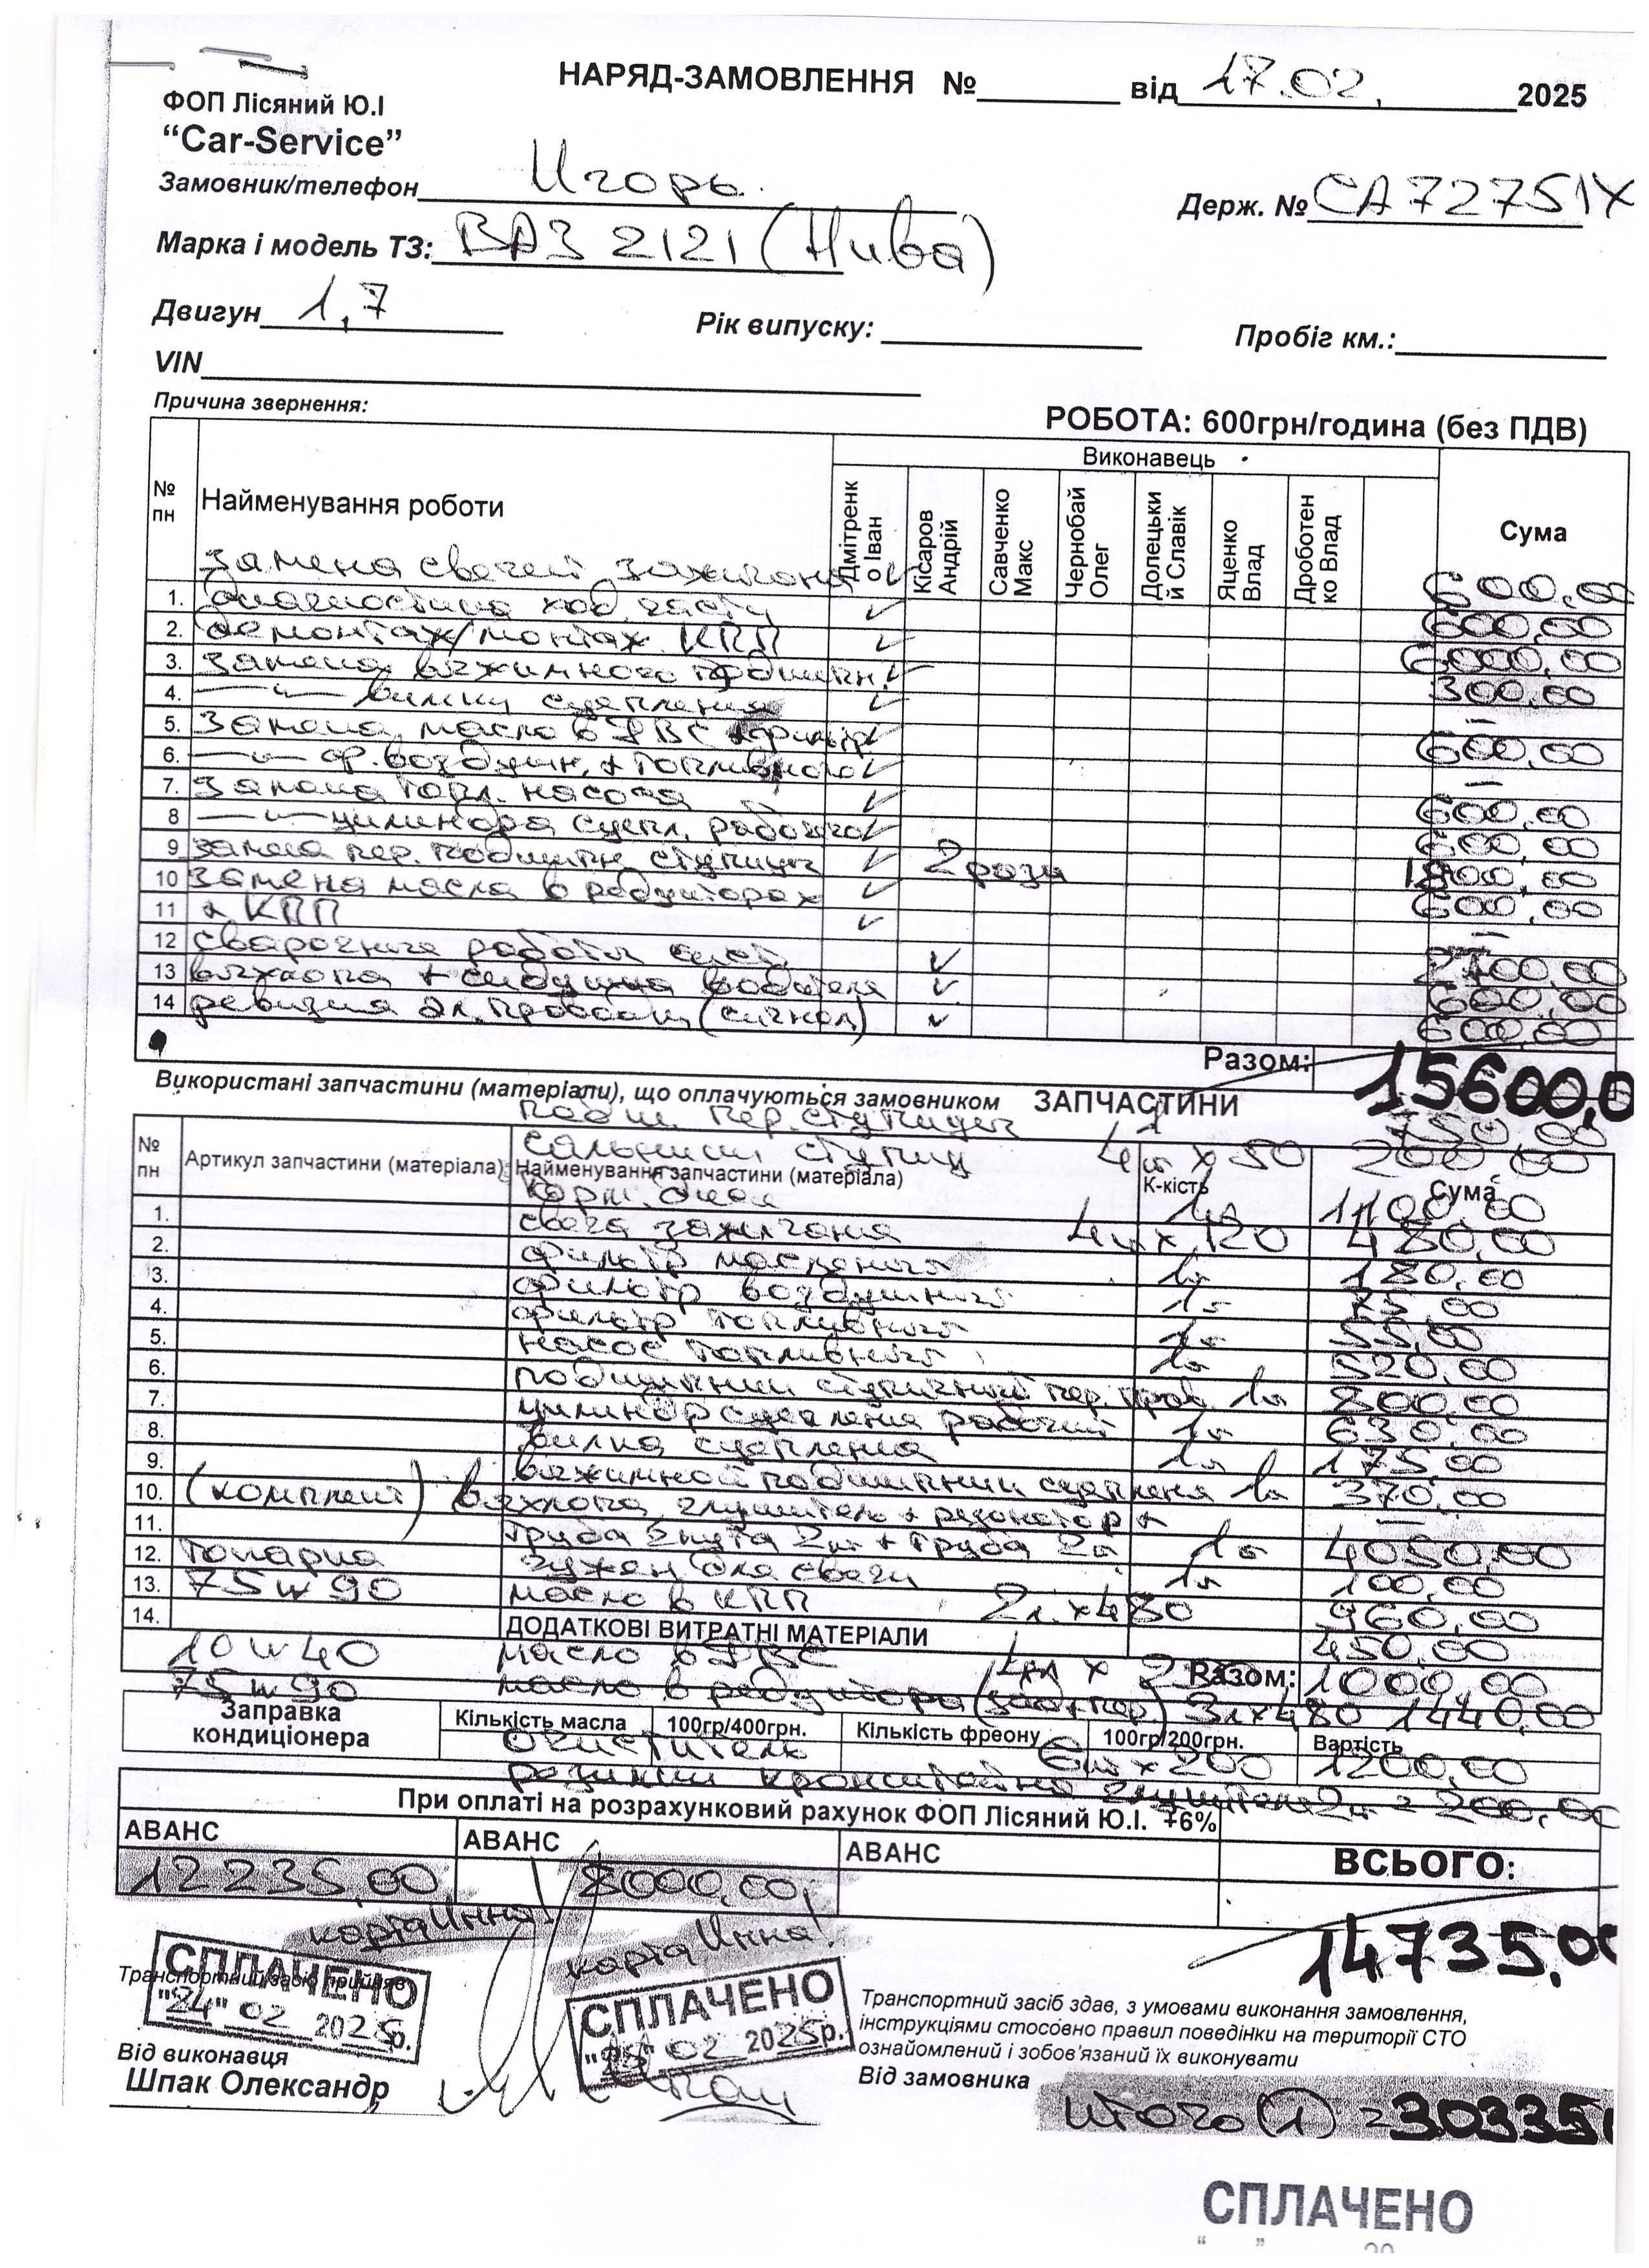 НАРЯД-ЗАМОВЛЕННЯ № від 17.02. 2025
ФОП Лісяний Ю.І
“Car-Service”
Замовник/телефон Игорь
Держ. № СА7275ІХ
Марка і модель ТЗ: ВАЗ 2121 (Нива)
Двигун 1,7 Рік випуску: Пробіг км.:
VIN
Причина звернення:
РОБОТА: 600грн/година (без ПДВ)
№ пн Найменування роботи Виконавець Сума
Дмітренко Іван Кісаров Андрій Савченко Макс Чернобай Олег Долецький Славік Яценко Влад Дроботенко Влад
замена свечей зажигания 600,00
1. диагностика ход. части 600,00
2. демонтаж/монтаж КПП 6000,00
3. замена выжимного подшипн. 300,00
4. —"— вилки сцепления —
5. Замена масла в ДВС + фильтр 600,00
6. —"— ф. воздушн. + топливного —
7. замена топл. насоса 600,00
8 —"— цилиндра сцепл. рабочего 600,00
9 замена пер. подшипн. ступицы 2 раза 1800,00
10 замена масла в редукторах 600,00
11 + КПП —
12 сварочные работы 2700,00
13 выхлопа + сидушка водителя 600,00
14 ревизия эл. проводки (сигнал) 600,00
Разом: 15600,0
Використані запчастини (матеріали), що оплачуються замовником ЗАПЧАСТИНИ
подш. пер. ступицы 1 750,00
сальники ступиц 4шт x 50 200,00
№ пн Артикул запчастини (матеріала) Найменування запчастини (матеріала) К-кість Сума
1 1100,00
1. свеча зажигания 4шт x 120 480,00
2. фильтр масляный 1шт 180,00
3. фильтр воздушный 1шт 75,00
4. фильтр топливный 1шт 55,00
5. насос топливный 1шт 520,00
6. подшипник ступичный пер. прав. 1шт 800,00
7. цилиндр сцепления рабочий 1шт 630,00
8. вилка сцепления 1шт 175,00
9. выжимной подшипник сцепления 1шт 370,00
10. (комплект) выхлопа, глушитель + резонатор + —
11. труба гнута 2шт + труба 2шт 1шт 4050,00
12. для свечи 1шт 100,00
13. 75w90 масло в КПП 2л. x 480 960,00
14. ДОДАТКОВІ ВИТРАТНІ МАТЕРІАЛИ 450,00
10w40 масло в ДВС 4л x Разом: 1000,00
75w90 масло в редуктора (зад+пер) 3л x 480 1440,00
Заправка кондиціонера Кількість масла 100гр/400грн. Кількість фреону 100гр/200грн. Вартість
очиститель 6шт x 200 1200,00
резинки кронштейна глушителя 2шт = 200,00
При оплаті на розрахунковий рахунок ФОП Лісяний Ю.І. +6%
АВАНС АВАНС АВАНС ВСЬОГО:
12235,00 8000,00
карта Инна! карта Инна!
14735,00
СПЛАЧЕНО
"24" 02 2025р.
СПЛАЧЕНО
"25" 02 2025р.
Транспортний засіб прийняв
Від виконавця
Шпак Олександр
Транспортний засіб здав, з умовами виконання замовлення,
інструкціями стосовно правил поведінки на території СТО
ознайомлений і зобов’язаний їх виконувати
Від замовника
итого (1) = 30335
СПЛАЧЕНО
" " 20